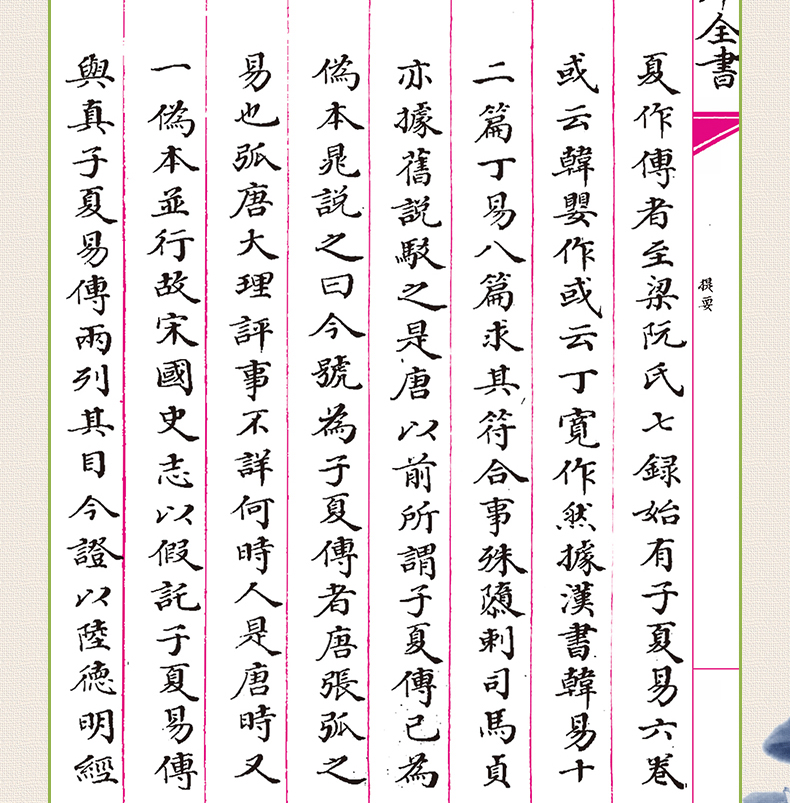 全書
撰要
夏作傳者至梁阮氏七録始有子夏易六卷
或云韓嬰作或云丁寬作然據漢書韓易十
二篇丁易八篇求其符合事殊隳剌司馬貞
亦據舊說駁之是唐以前所謂子夏傳已為
偽本晁說之曰今號為子夏傳者唐張弧之
易也弧唐大理評事不詳何時人是唐時又
一偽本並行故宋國史志以假託子夏易傳
與真子夏易傳兩列其目今證以陸德明經